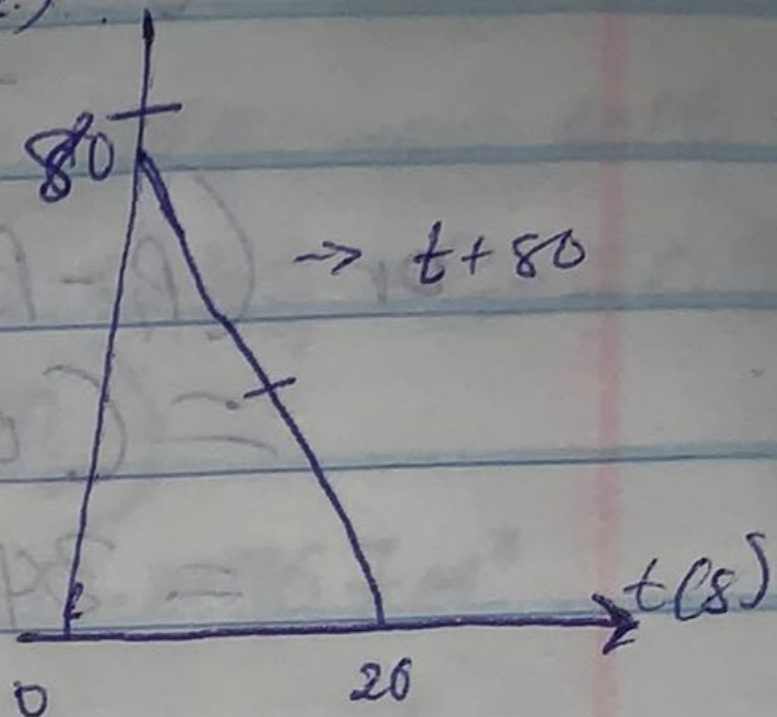 80
→ t + 80
t(s)
0
20